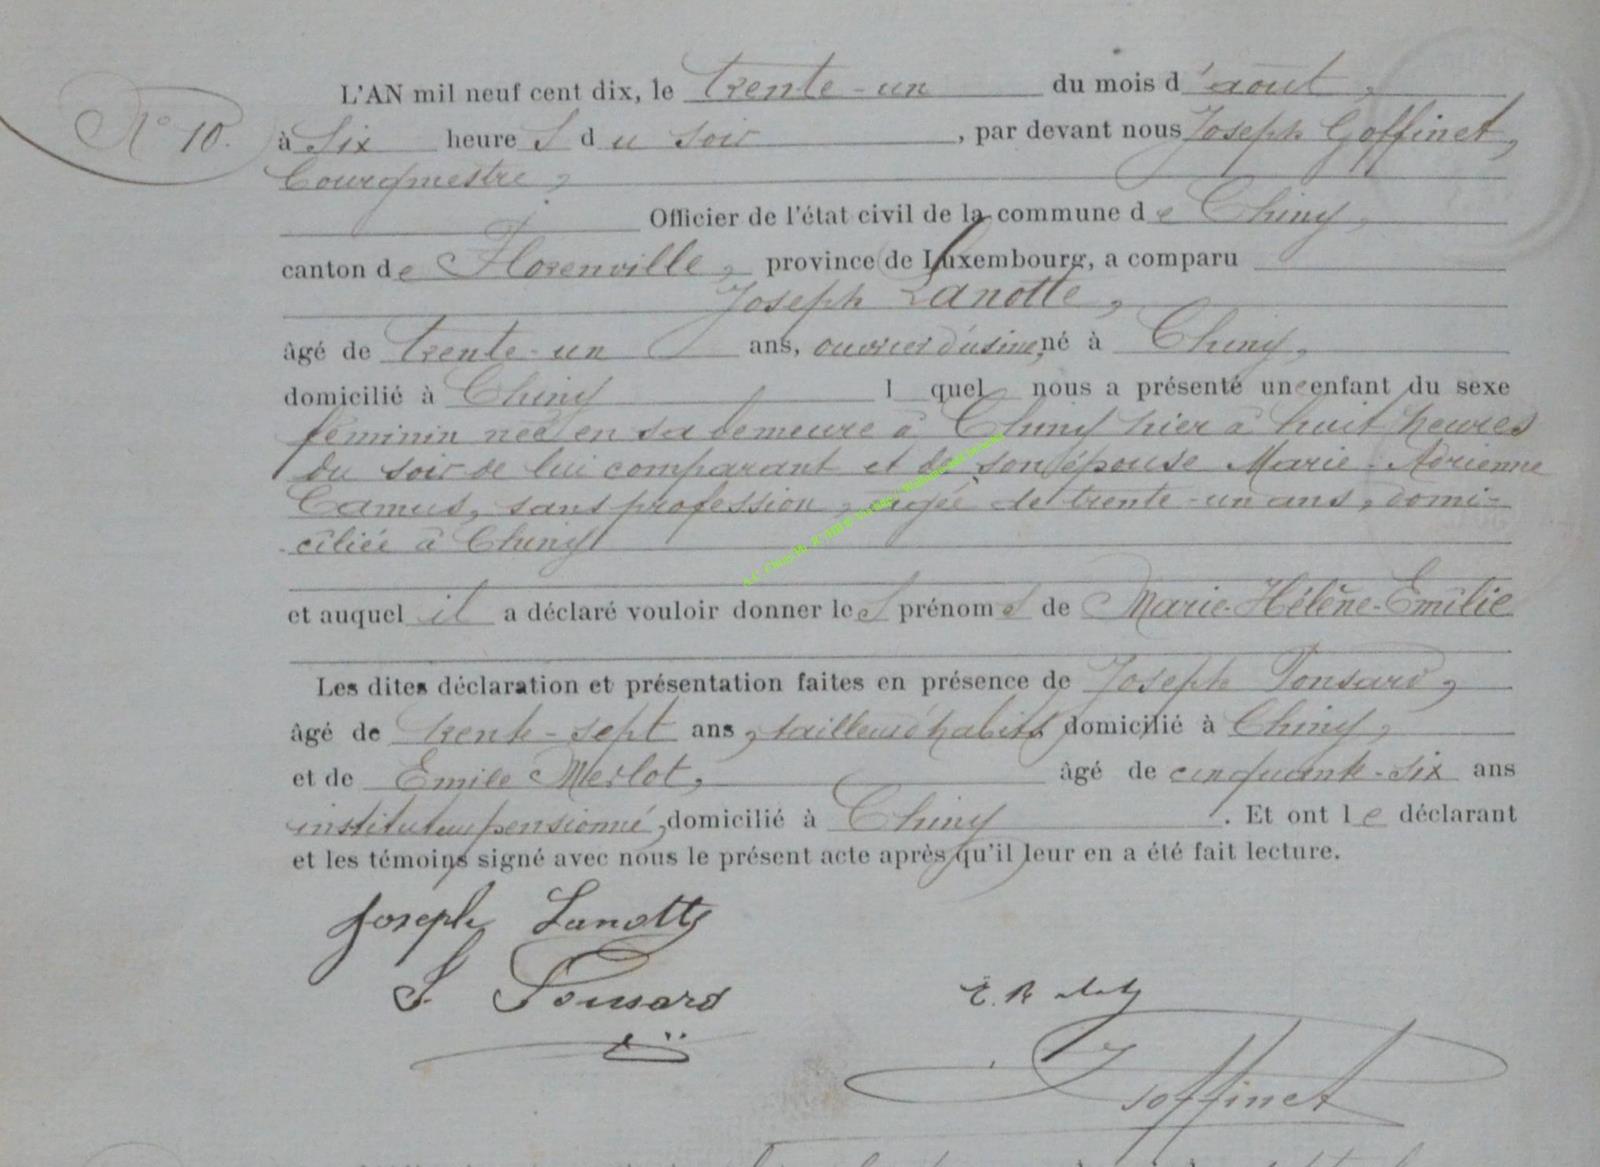 L'AN mil neuf cent dix, le trente-un du mois d'août,
N° 10.
à Six heure s du soir, par devant nous Joseph Goffinet,
bourgmestre,
Officier de l'état civil de la commune de Chiny,
canton de Florenville, province de Luxembourg, a comparu
Joseph Lanotte,
âgé de trente-un ans, ouvrier d'usine, né à Chiny,
domicilié à Chiny l quel nous a présenté une enfant du sexe
féminin née en sa demeure à Chiny hier à huit heures
du soir de lui comparant et de son épouse Marie-Adrienne
Camus, sans profession, agée de trente-un ans, domi-
-ciliée à Chiny
et auquel il a déclaré vouloir donner les prénoms de Marie-Hélène-Emilie
Les dites déclaration et présentation faites en présence de Joseph Ponsard,
âgé de trente-sept ans, tailleur d'habits domicilié à Chiny,
et de Emile Merlot, âgé de cinquante-six ans
instituteur pensionné, domicilié à Chiny. Et ont le déclarant
et les témoins signé avec nous le présent acte après qu'il leur en a été fait lecture.
Joseph Lanotte
J. Ponsard
J Goffinet